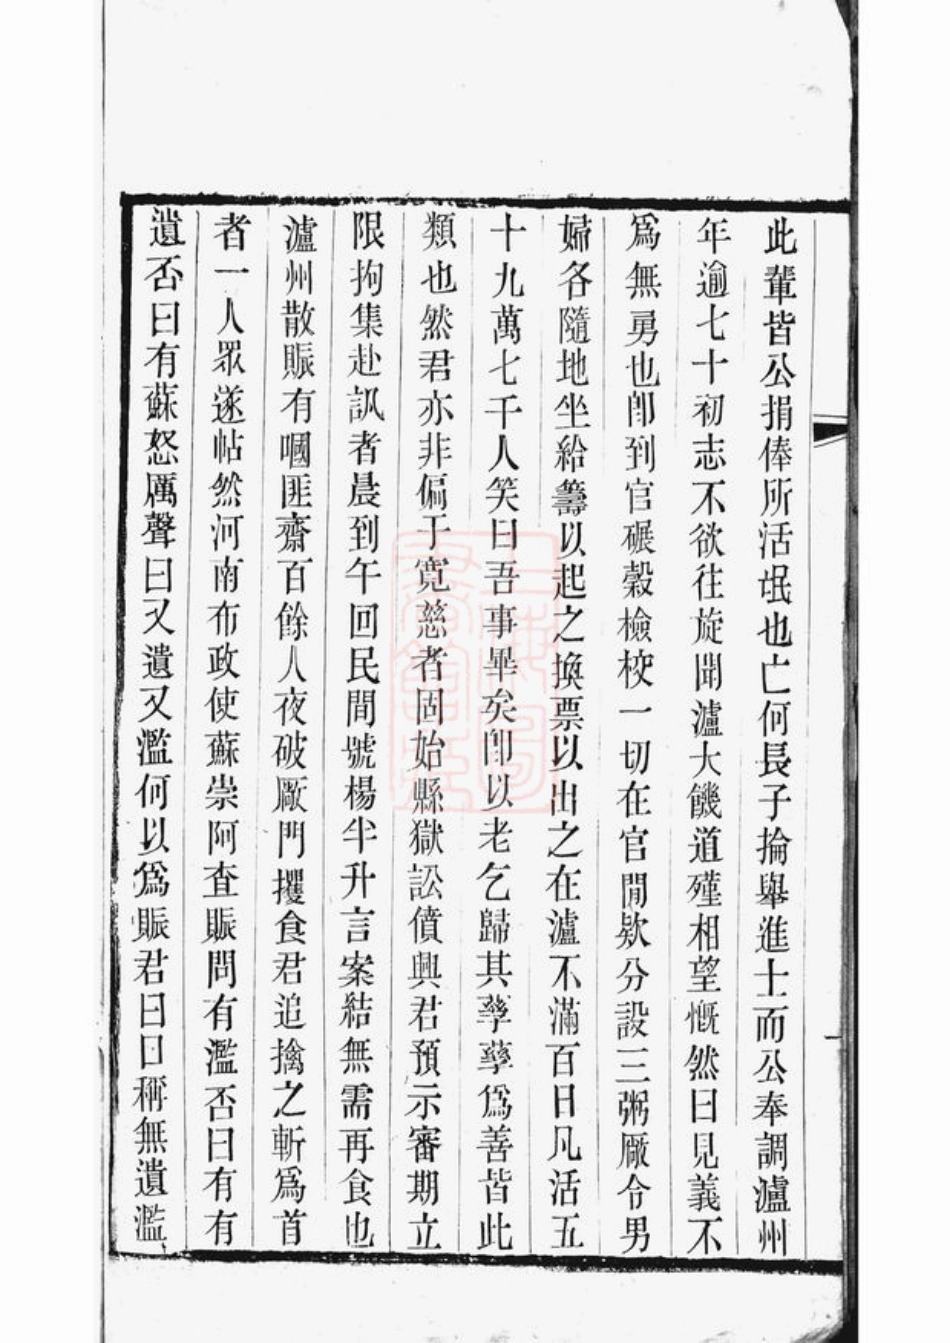 此輩皆公捐俸所活氓也亡何長子掄舉進士而公奉調瀘州
年逾七十初志不欲往旋聞瀘大饑道殣相望慨然曰見義不
爲無勇也卽到官碾穀檢校一切在官閒欵分設三粥廠令男
婦各隨地坐給籌以起之換票以出之在瀘不滿百日凡活五
十九萬七千人笑曰吾事畢矣卽以老乞歸其孳孳爲善皆此
類也然君亦非偏于寬慈者固始縣獄訟債興君預示審期立
限拘集赴訊者晨到午回民間號楊半升言案結無需再食也
瀘州散賑有嘓匪齋百餘人夜破厰門攫食君追擒之斬爲首
者一人眾遂帖然河南布政使蘇崇阿查賑問有濫否曰有有
遺否曰有蘇怒厲聲曰又遺又濫何以爲賑君曰日稱無遺濫